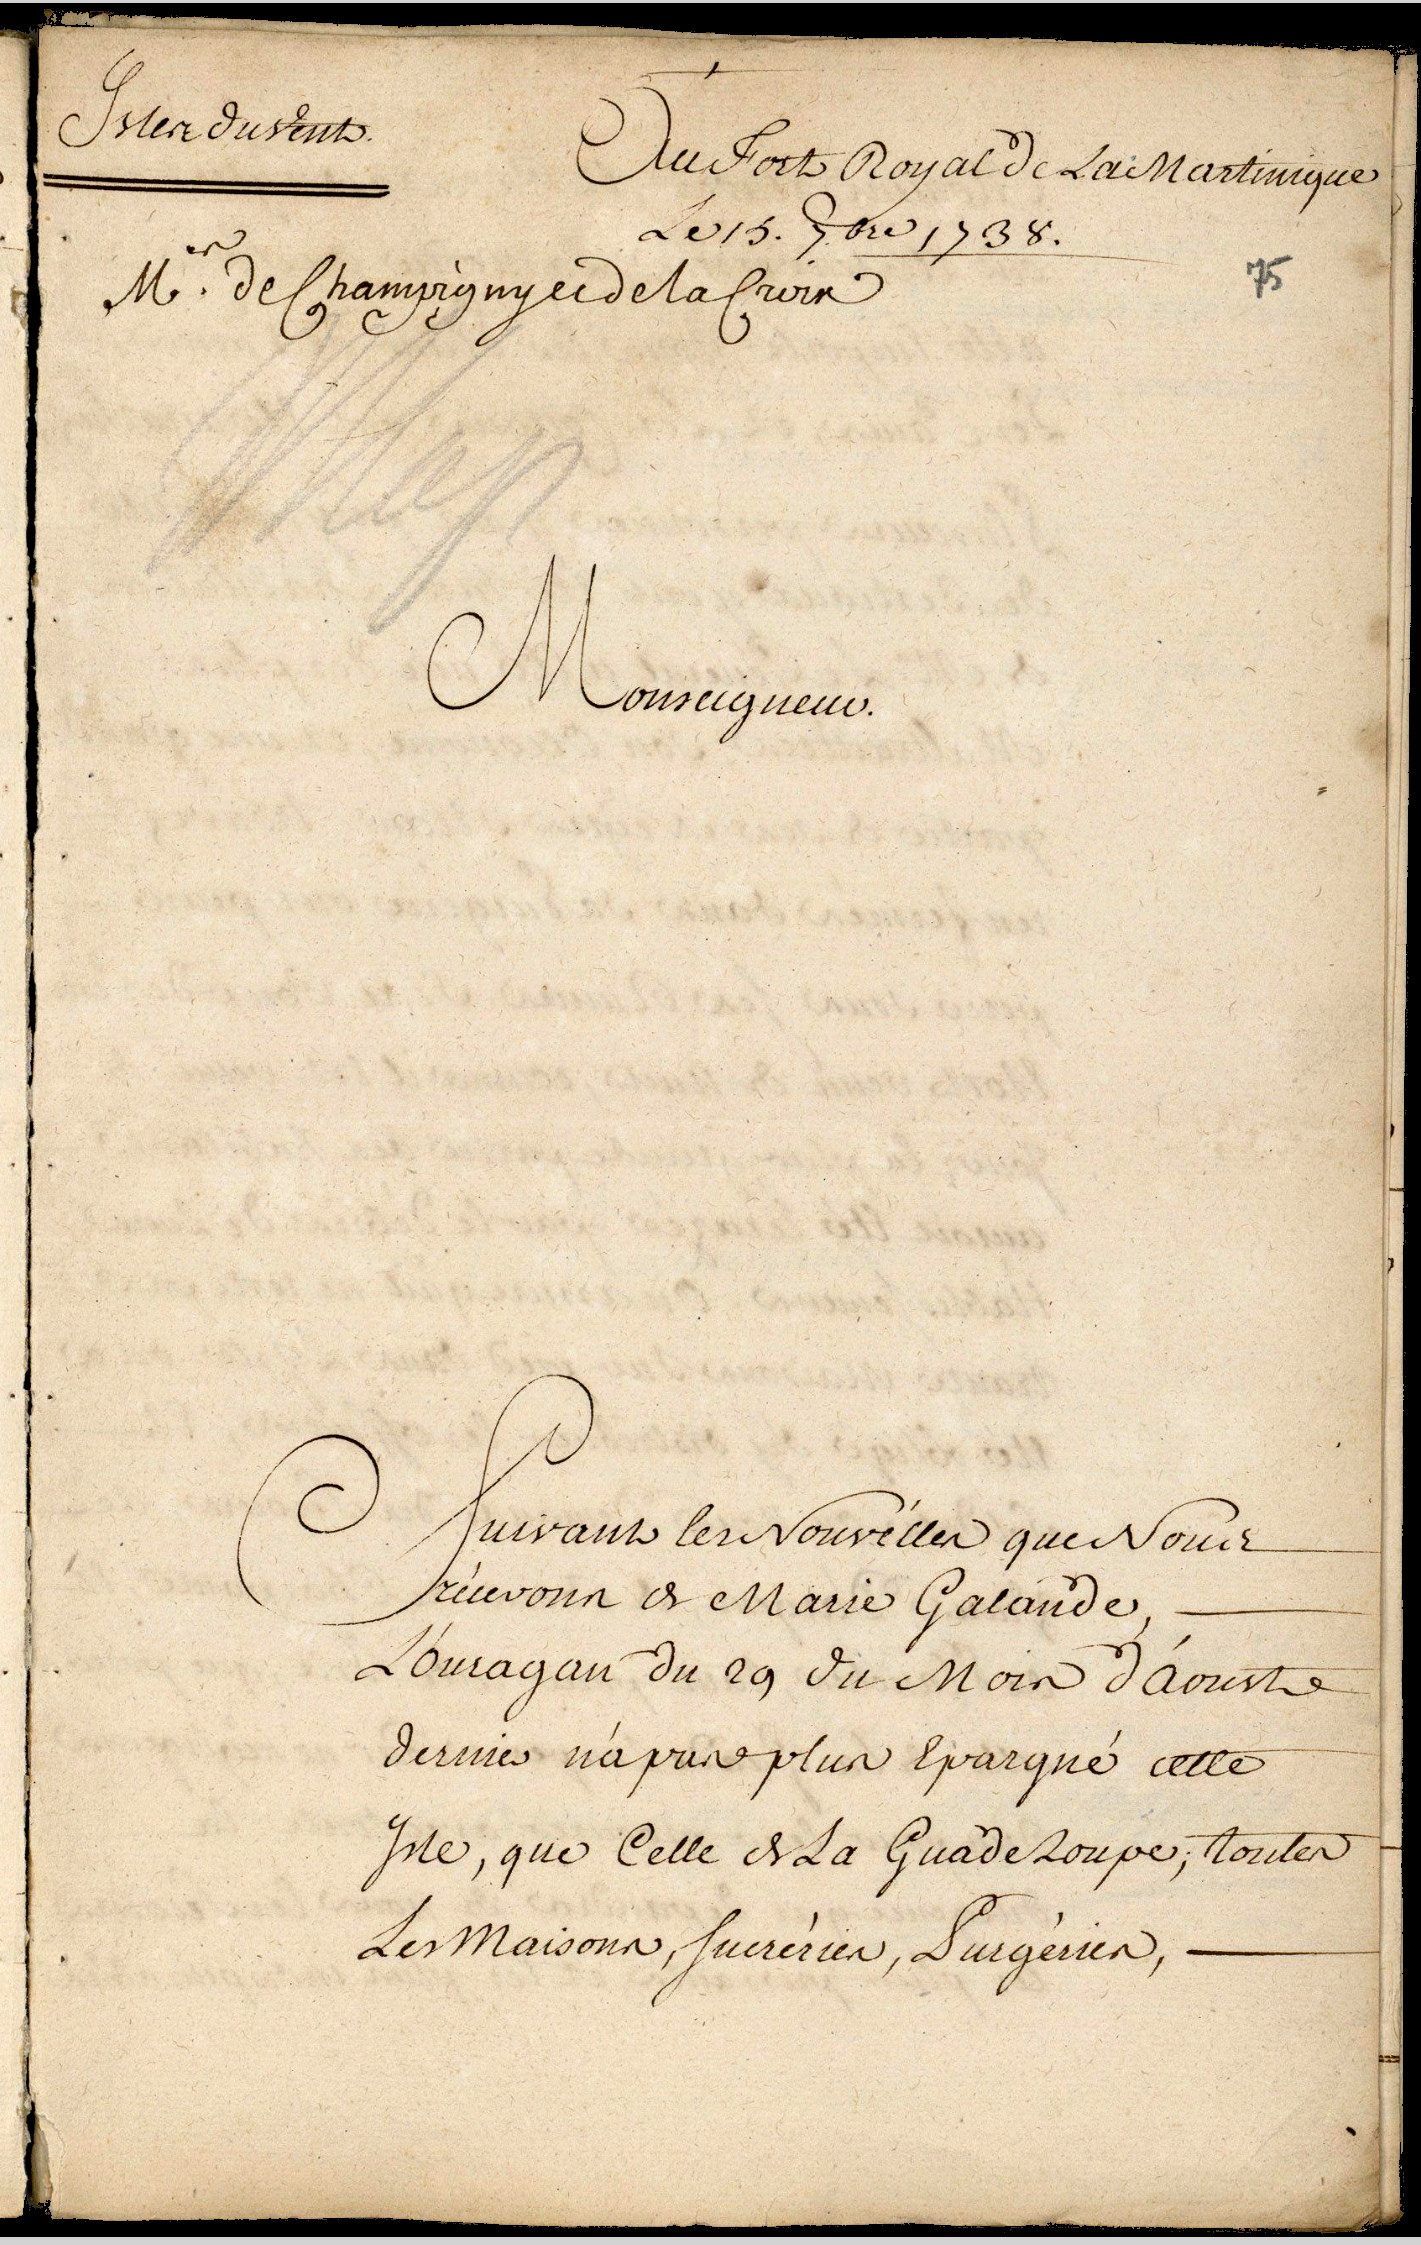 Isles du Vent.
Au Fort Royal de La Martinique
Le 15. 7.bre 1738.
75
M.rs de Champigny et de la Croix
Monseigneur.
Suivant les Nouvélles que Nous
récevons de Marie Galande,
L'Ouragan du 29 du Mois d'Aoust
dernier n'a pas plus Epargné cette
Isle, que Celle de La Guadeloupe; toutes
Les Maisons, sucréries, Purgéries,